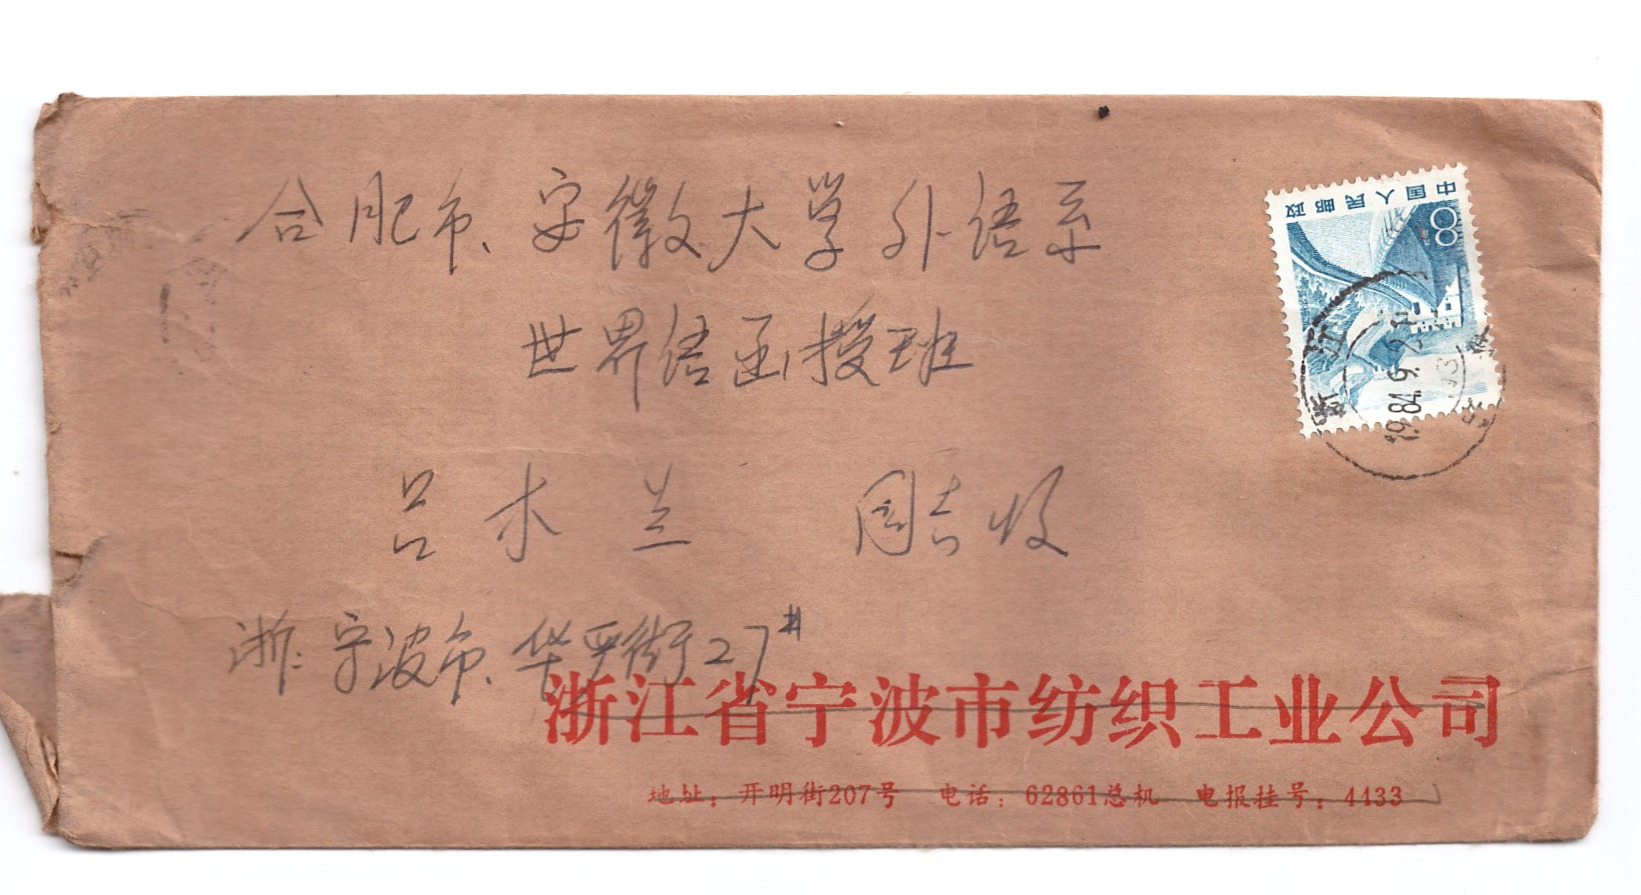 合肥市、安徽大学外语系
世界语函授班
吕木兰 同志收
浙:宁波市、华严街27#
浙江省宁波市纺织工业公司
地址:开明街207号 电话:62861总机 电报挂号:4433
中国人民邮政
8
浙江
1984.9.2
宁波